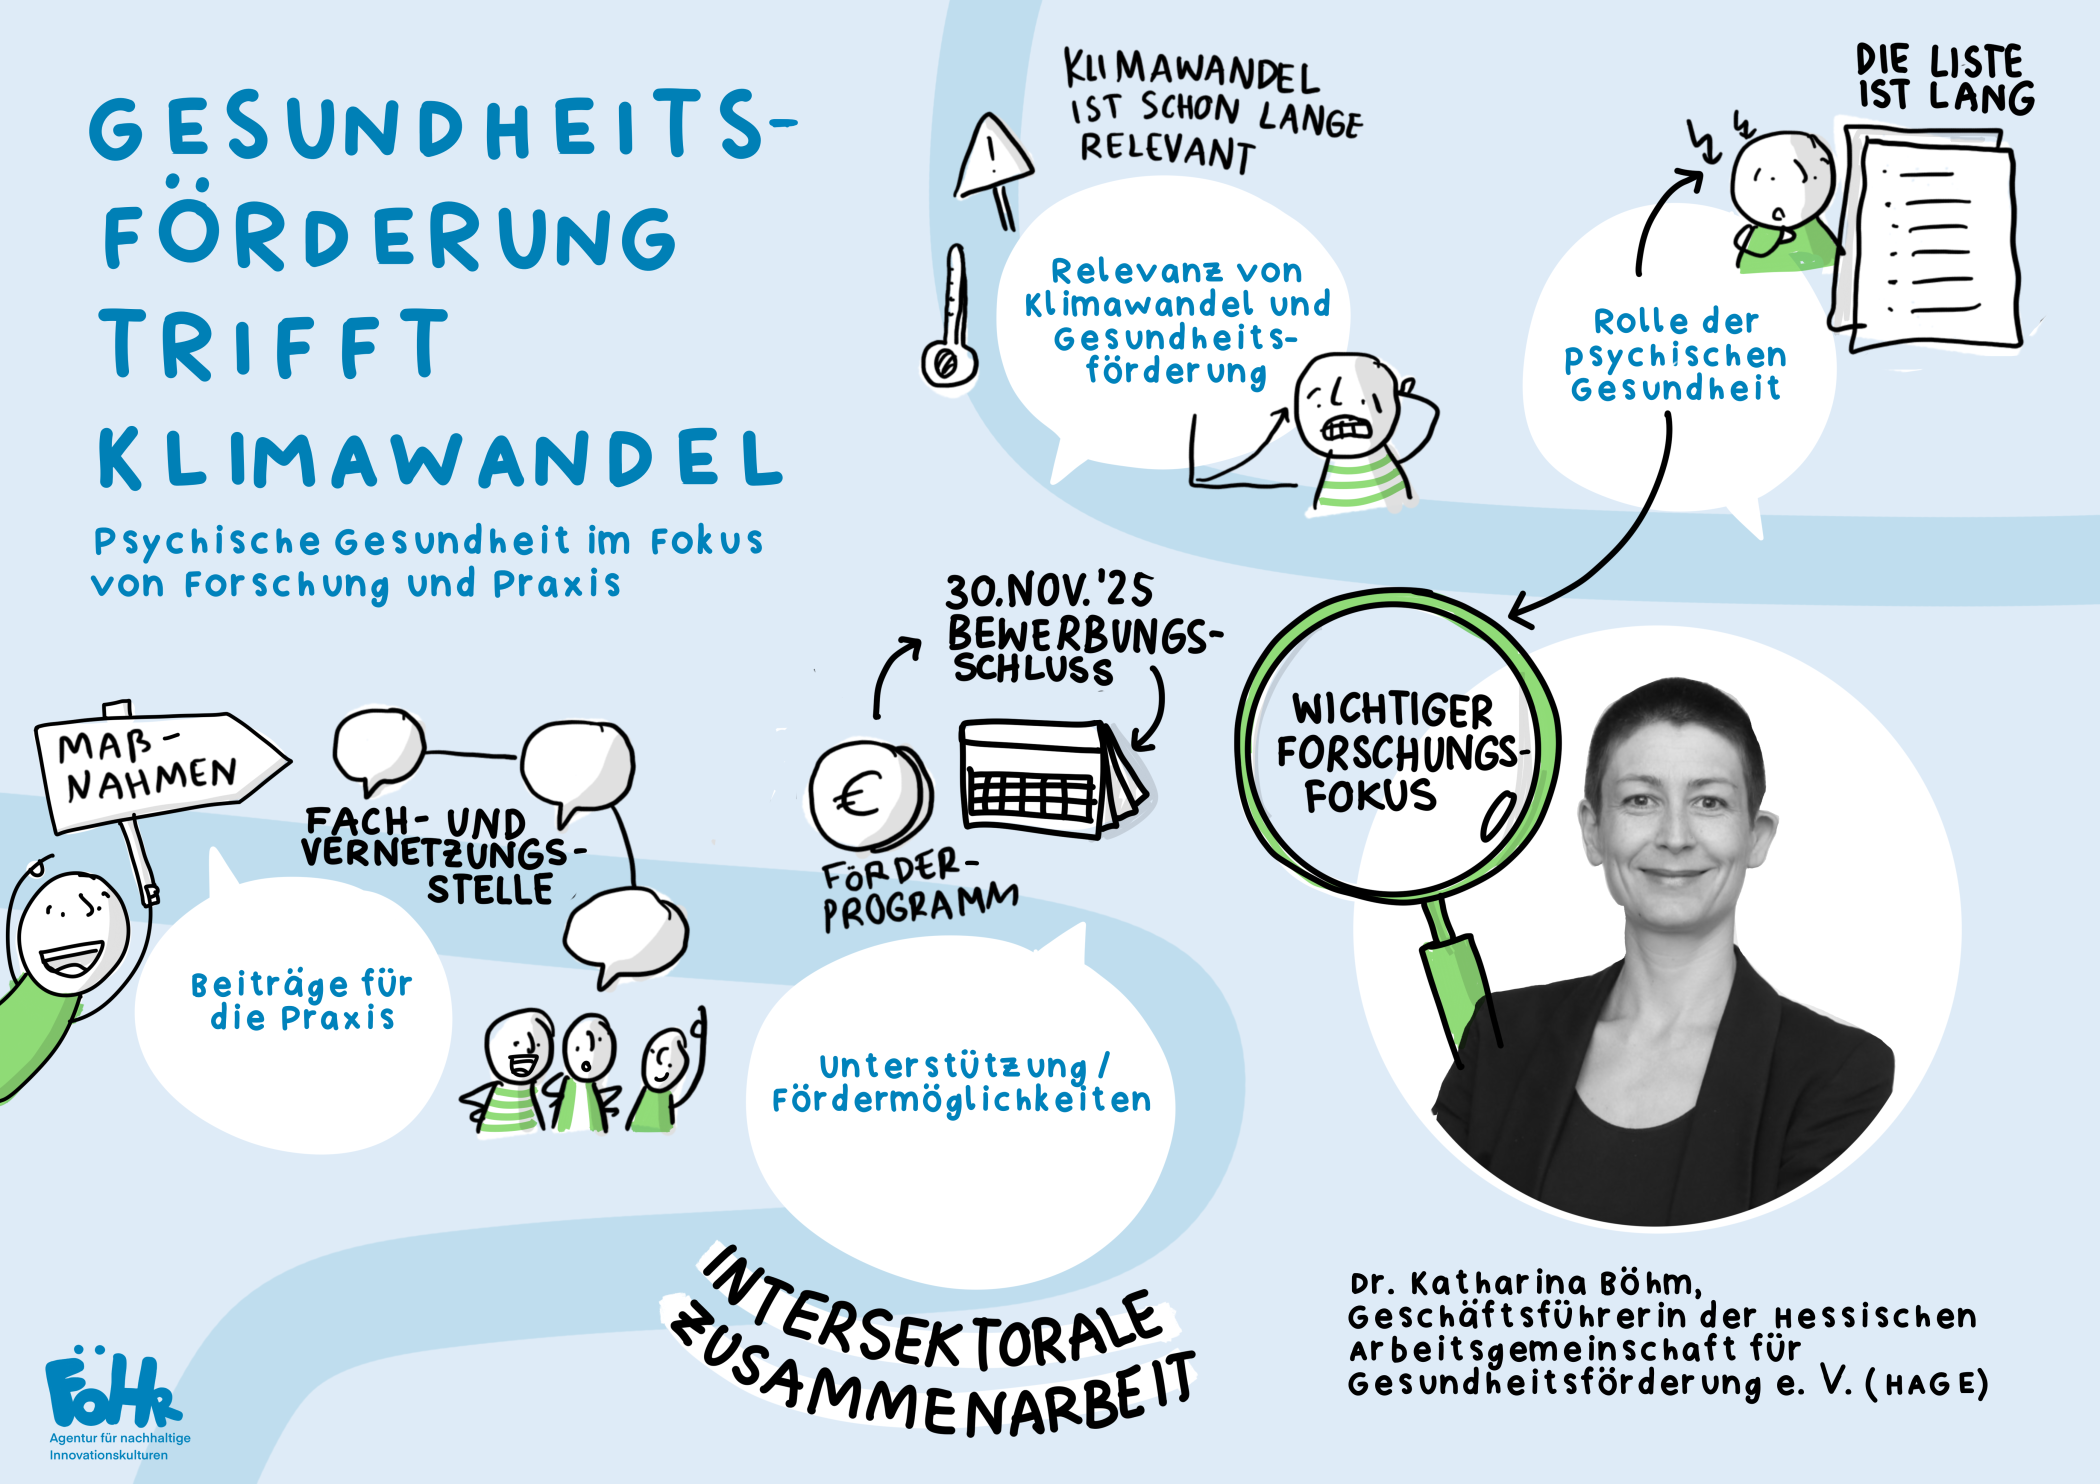 GESUNDHEITS-
FÖRDERUNG
TRIFFT
KLIMAWANDEL
Psychische Gesundheit im Fokus
von Forschung und Praxis
KLIMAWANDEL
IST SCHON LANGE
RELEVANT
!
Relevanz von
Klimawandel und
Gesundheits-
förderung
DIE LISTE
IST LANG
Rolle der
psychischen
Gesundheit
30.NOV.'25
BEWERBUNGS-
SCHLUSS
€
FÖRDER-
PROGRAMM
WICHTIGER
FORSCHUNGS-
FOKUS
MAß-
NAHMEN
FACH- UND
VERNETZUNGS-
STELLE
Beiträge für
die Praxis
Unterstützung /
Fördermöglichkeiten
INTERSEKTORALE
ZUSAMMENARBEIT
Dr. Katharina Böhm,
Geschäftsführerin der Hessischen
Arbeitsgemeinschaft für
Gesundheitsförderung e. V. (HAGE)
FÖHR
Agentur für nachhaltige
Innovationskulturen